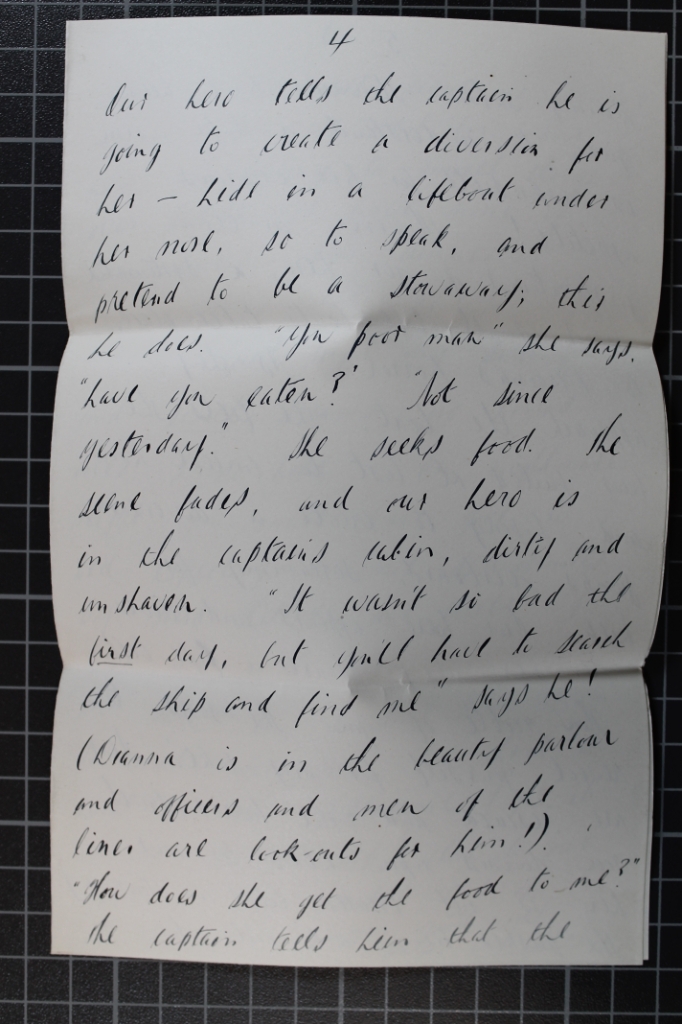 4
Our hero tells the captain he is
going to create a diversion for
her – hide in a lifeboat under
her nose, so to speak, and
pretend to be a stowaway; this
he does. "You poor man" she says,
"have you eaten?" "Not since
yesterday." She seeks food. The
scene fades, and our hero is
in the captain's cabin, dirty and
unshaven. "It wasn't so bad the
first day, but you'll have to search
the ship and find me" says he!
(Dianna is in the beauty parlour
and officers and men of the
liner are look-outs for him!).
"How does she get the food to me?"
The captain tells him that the